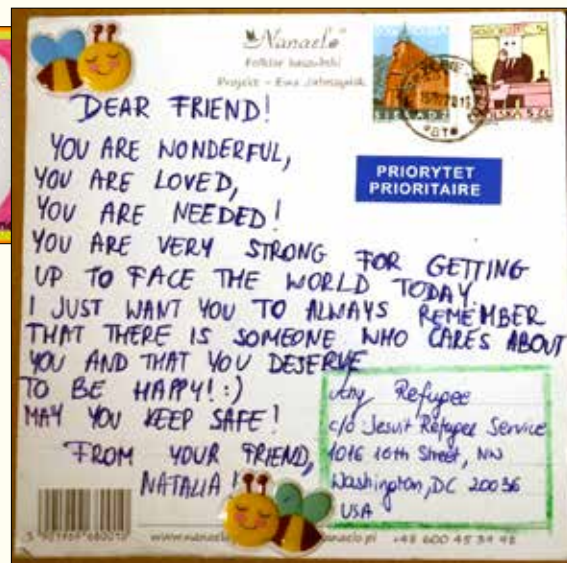 Nanaclo
Folklor kaszubski
Projekt - Ewa
SIERADZ
POLSKA 5 ZŁ
PRIORYTET
PRIORITAIRE
DEAR FRIEND!
YOU ARE WONDERFUL,
YOU ARE LOVED,
YOU ARE NEEDED!
YOU ARE VERY STRONG FOR GETTING
UP TO FACE THE WORLD TODAY.
I JUST WANT YOU TO ALWAYS REMEMBER
THAT THERE IS SOMEONE WHO CARES ABOUT
YOU AND THAT YOU DESERVE
TO BE HAPPY! :)
MAY YOU KEEP SAFE!
FROM YOUR FRIEND,
NATALIA!
Any Refugee
c/o Jesuit Refugee Service
1016 16th Street, NW
Washington, DC 20036
USA
+48 600 45 39 98